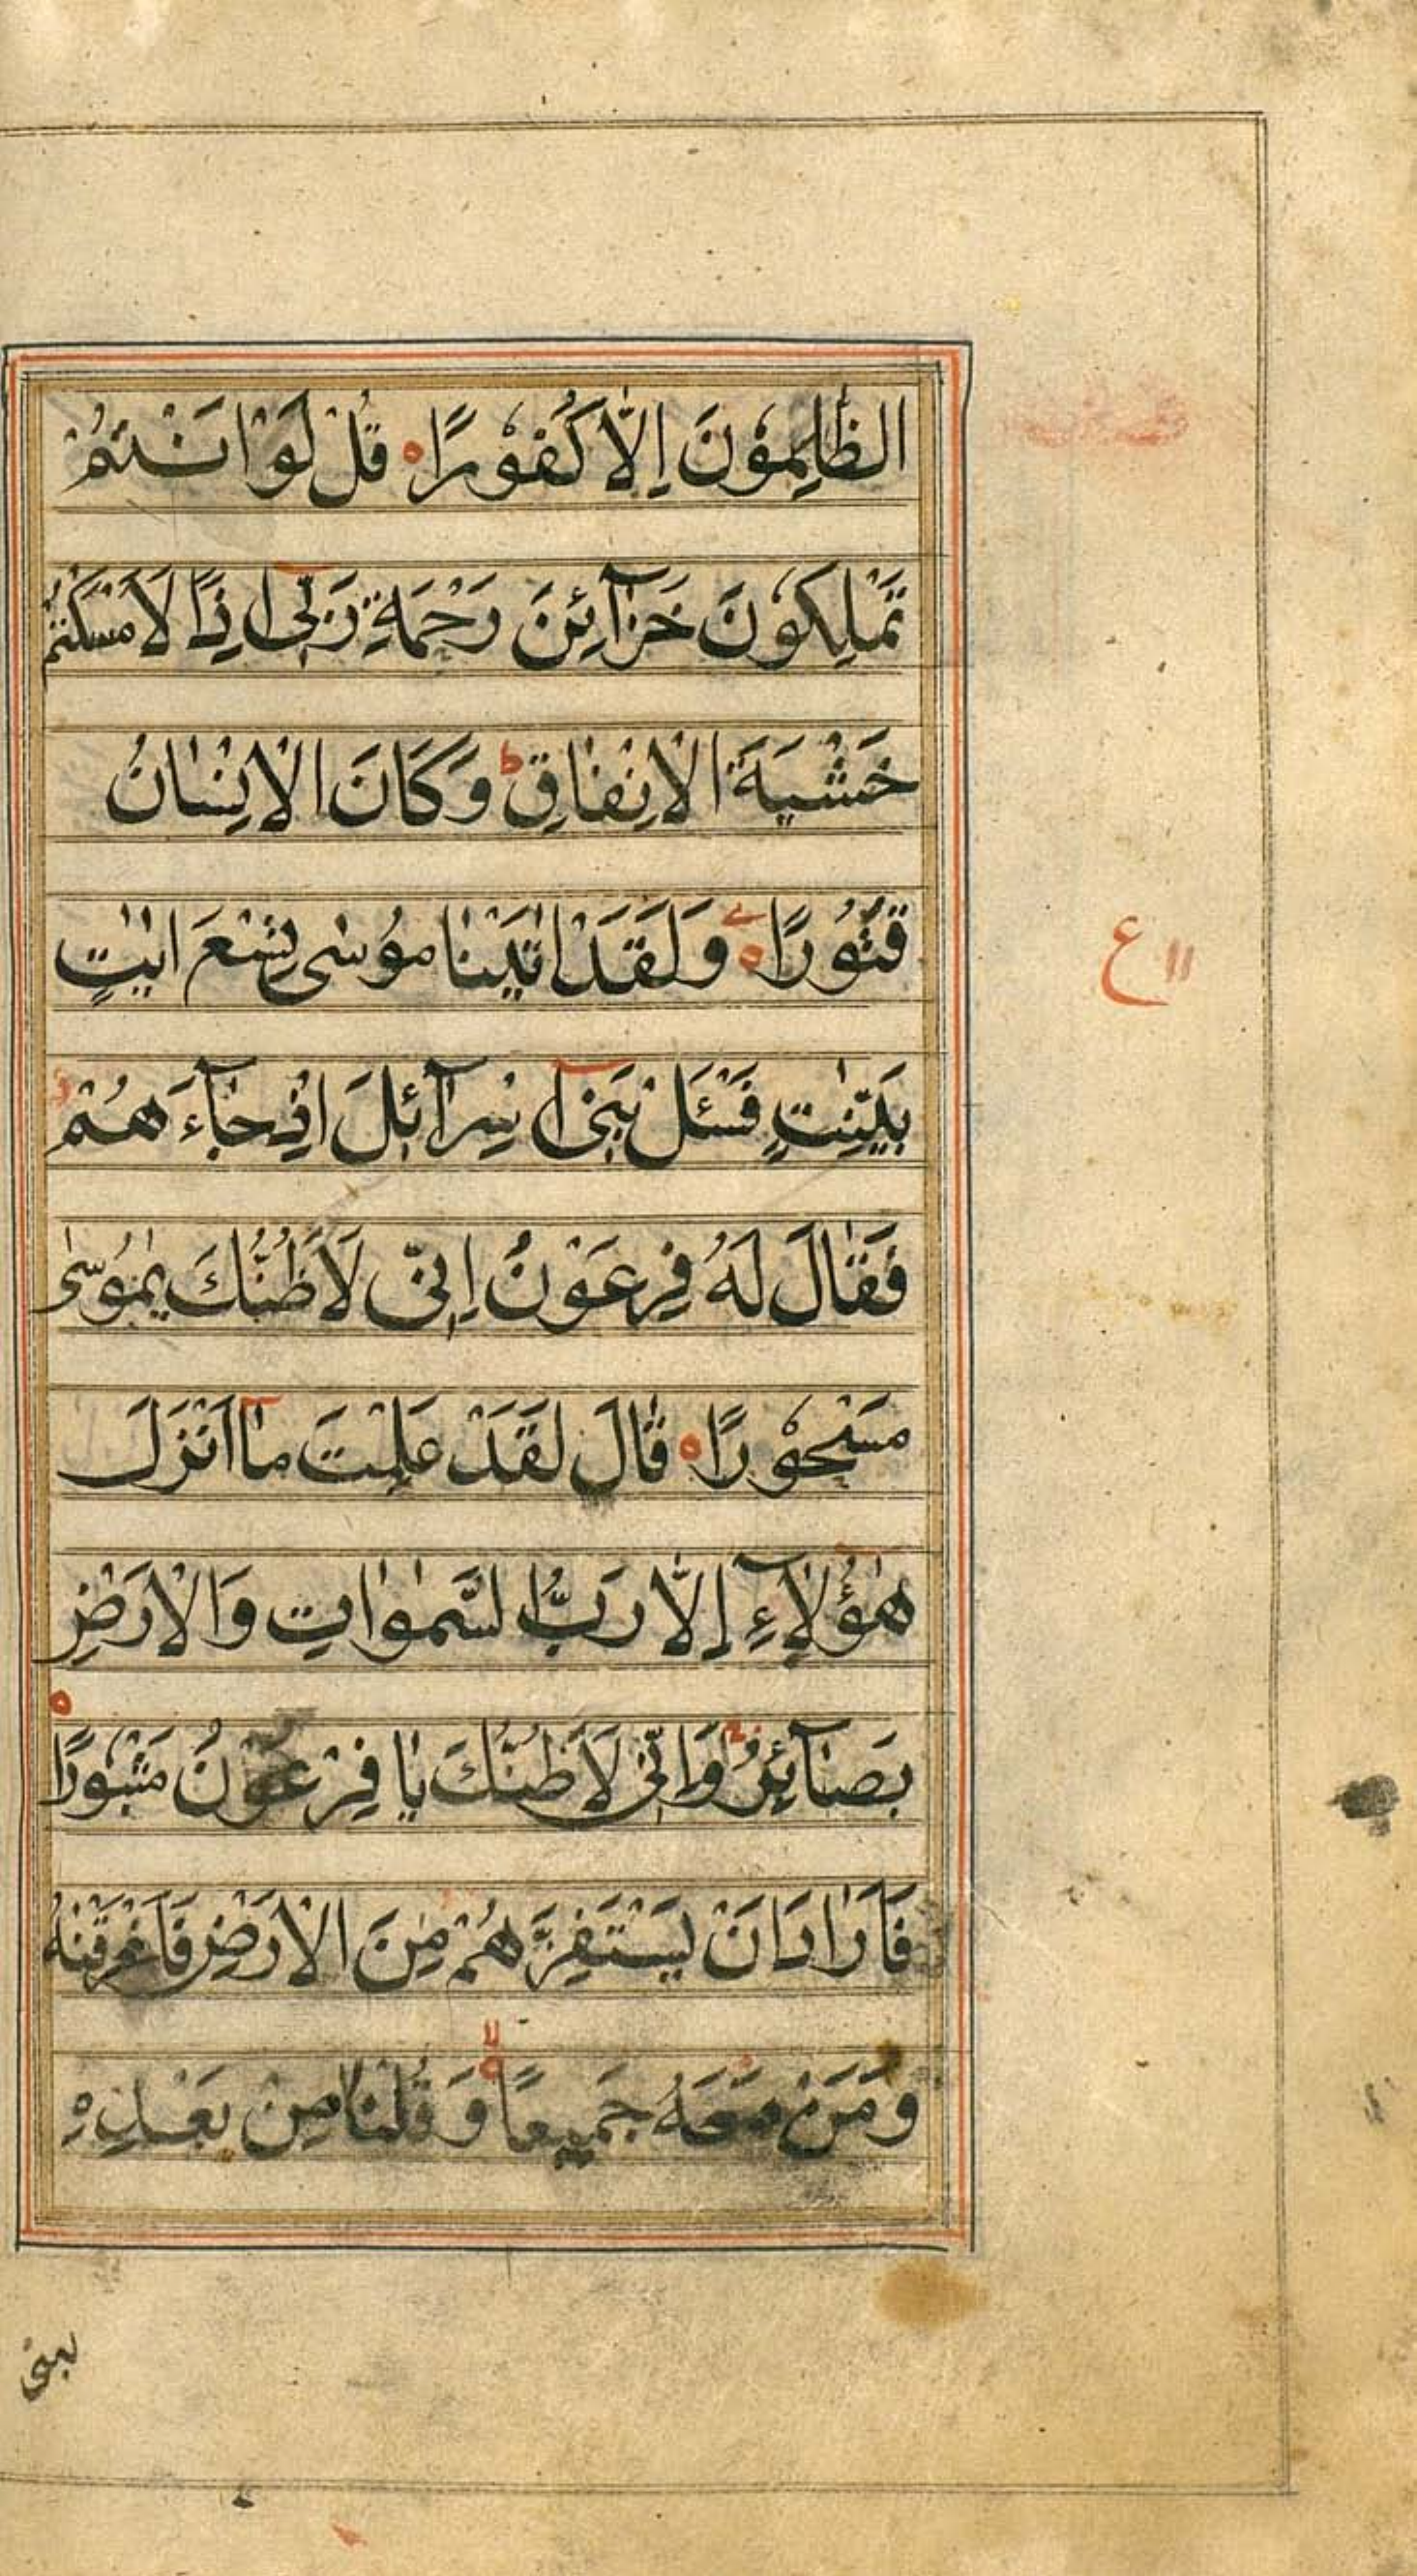 الظّٰلِمُوْنَ اِلَّا كُفُوْرًا ه قُلْ لَوْ اَنْتُمْ
تَمْلِكُوْنَ خَزَآئِنَ رَحْمَةِ رَبِّىٓ اِذًا لَاَمْسَكْتُمْ
خَشْيَةَ الْاِنْفٰاقِ ط وَكَانَ الْاِنْسٰانُ
قَتُوْرًا ه وَلَقَدْ اٰتَيْنٰا مُوْسٰى تِسْعَ اٰيٰتٍ
ع ١١
بَيِّنٰتٍ فَسْئَلْ بَنِىٓ اِسْرٰٓائِلَ اِذْ جٰآءَهُمْ
فَقٰالَ لَهُ فِرْعَوْنُ اِنّى لَاَظُنُّكَ يٰمُوْسٰى
مَسْحُوْرًا ه قٰالَ لَقَدْ عَلِمْتَ مٰٓا اَنْزَلَ
هٰؤُلٰآءِ اِلَّا رَبُّ السَّمٰوٰاتِ وَالْاَرْضِ
بَصٰآئِرَ وَاِنّى لَاَظُنُّكَ يٰا فِرْعَوْنُ مَثْبُوْرًا ه
فَاَرٰادَ اَنْ يَسْتَفِزَّهُمْ مِنَ الْاَرْضِ فَاَغْرَقْنٰهُ
وَمَنْ مَعَهُ جَمِيعًا ه وَقُلْنٰا مِنْ بَعْدِهِ
لبنى